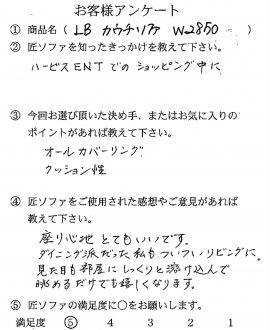 お客様アンケート
① 商品名 ( LB カウチソファ W2850 )
② 匠ソファを知ったきっかけを教えて下さい。
ハービスENTでのショッピング中に
③ 今回お選び頂いた決め手、またはお気に入りの
ポイントがあれば教えて下さい。
オールカバーリング
クッション性
④ 匠ソファをご使用された感想やご意見があれば
教えて下さい。
座り心地とてもいいです。
ダイニング派だった私もついついリビングに。
見た目も部屋にしっくりと溶け込んで
眺めるだけでも嬉しくなります。
⑤ 匠ソファの満足度に○をお願いします。
満足度 ⑤ 4 3 2 1